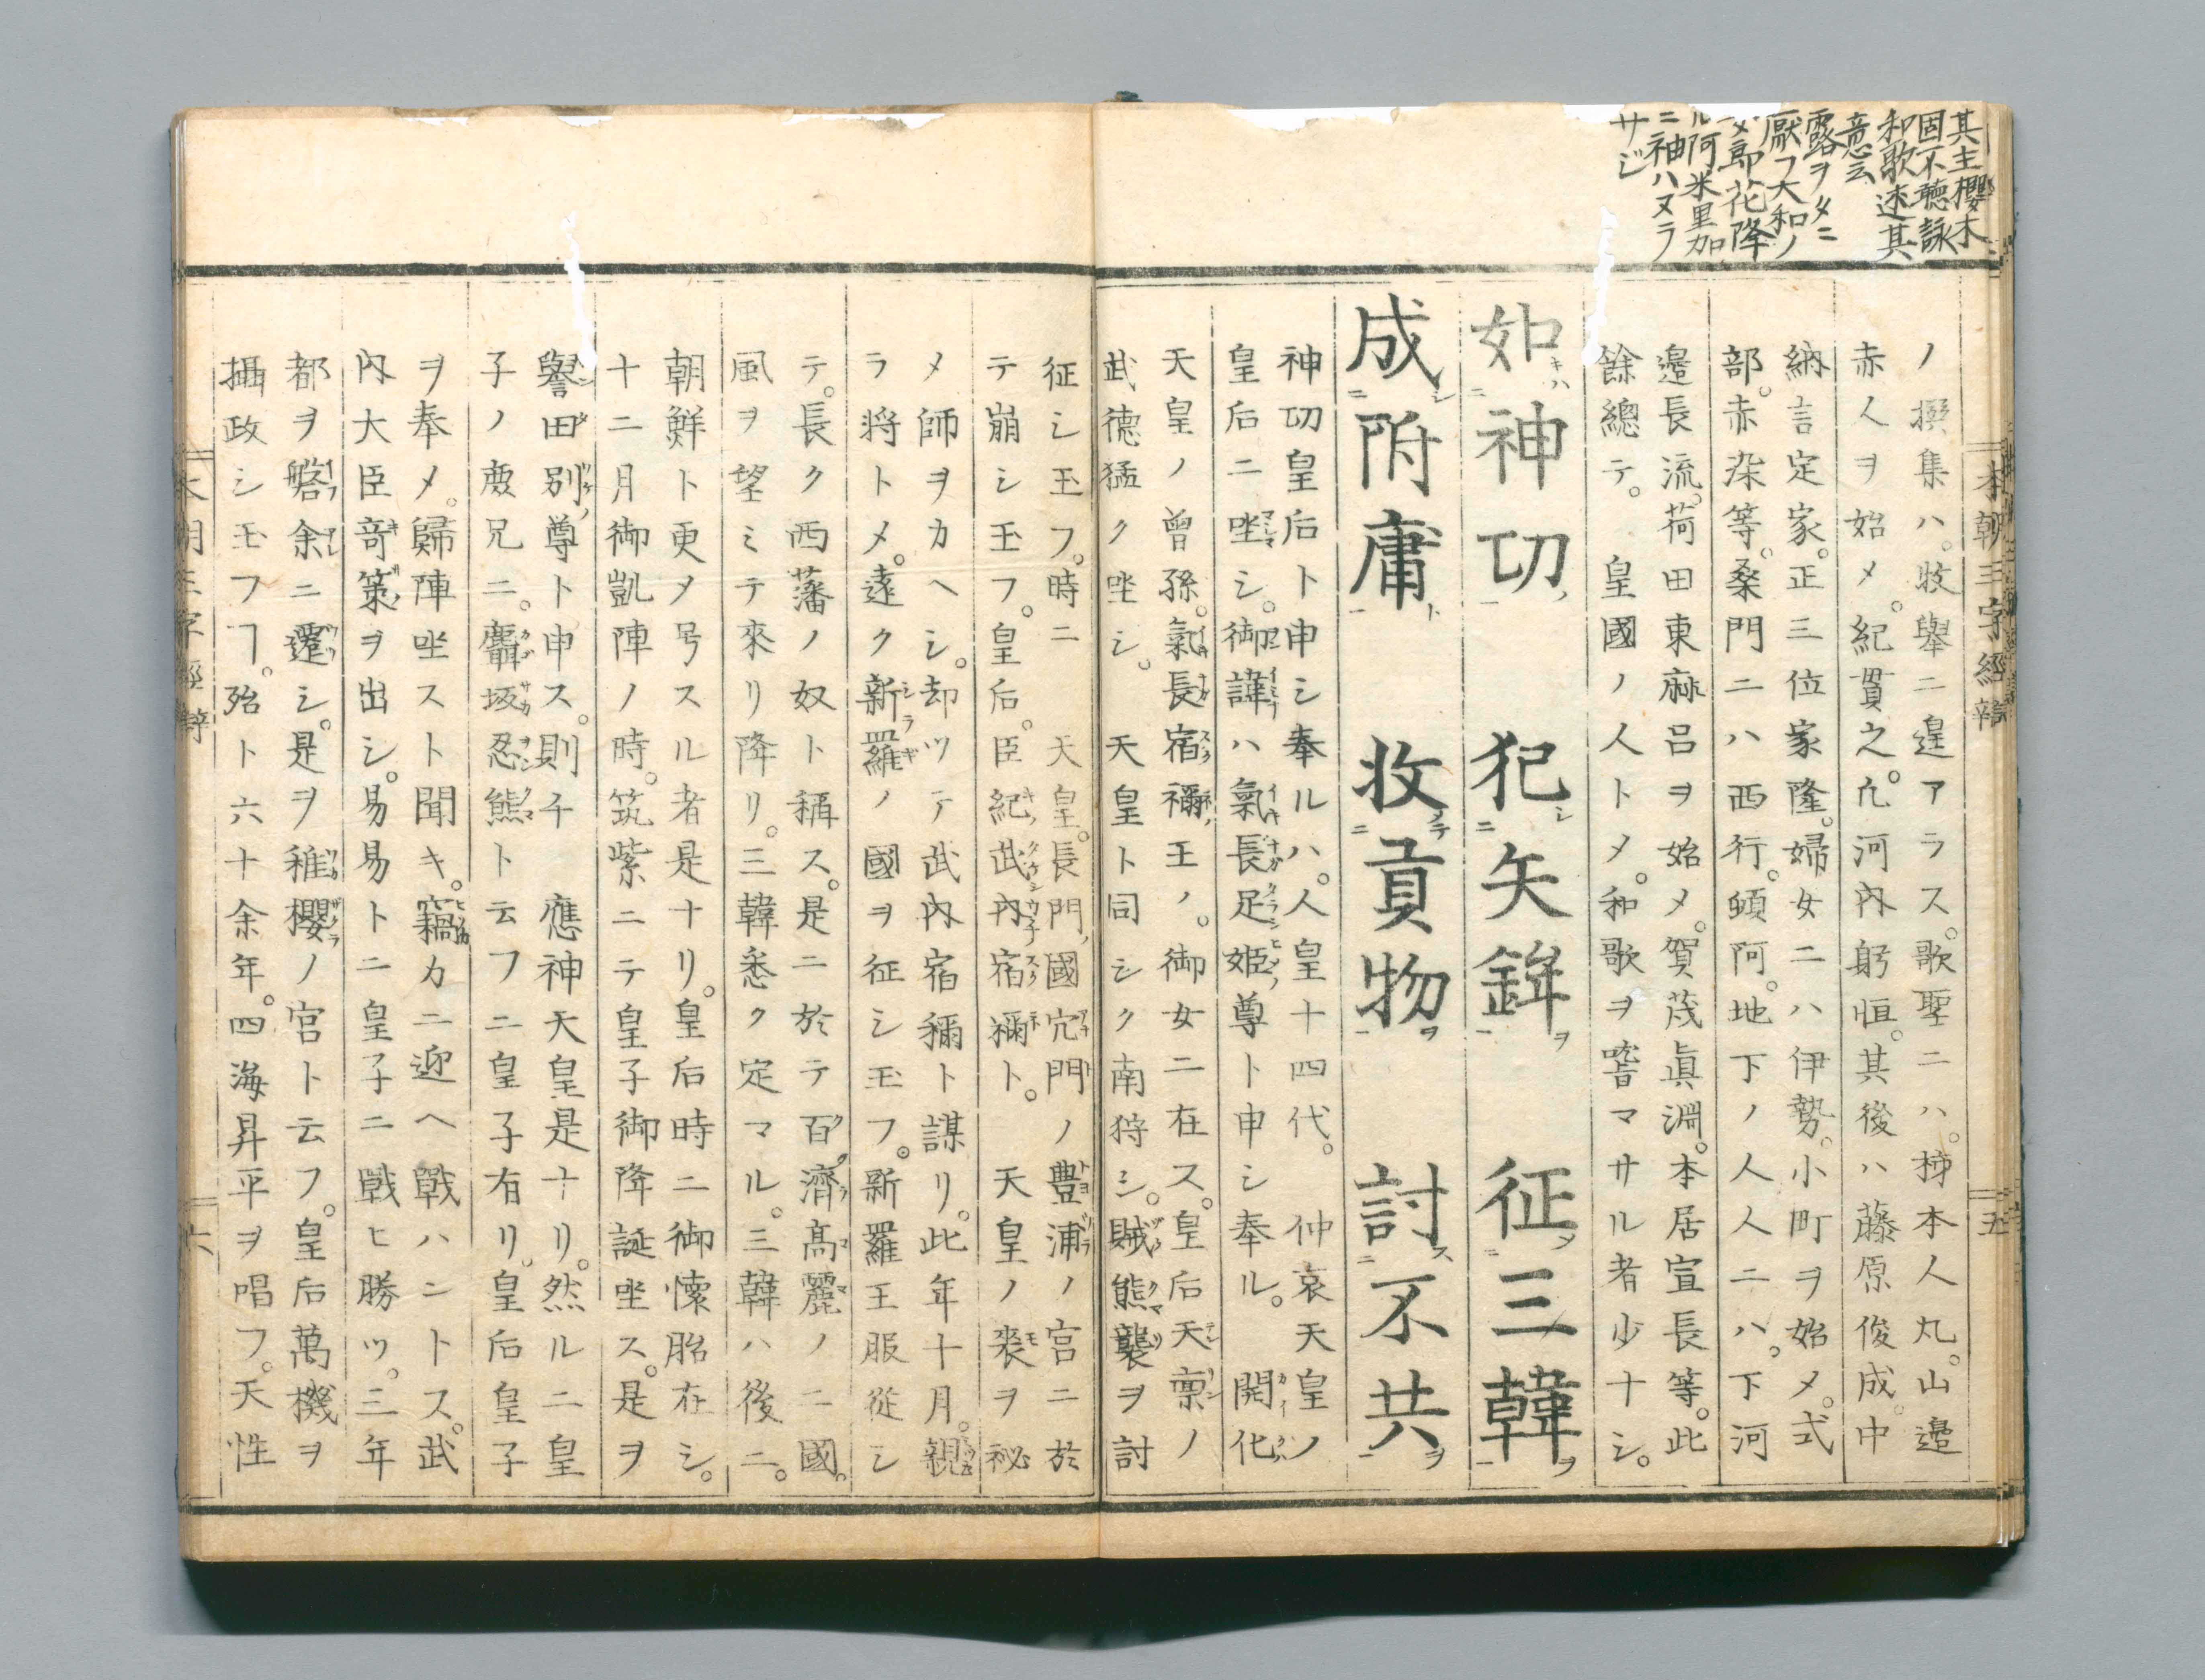 其主櫻木
固不聽詠
和歌述其
意云
露ヲダニ
厭フ大和ノ
女郎花降
ル阿米里加
ニ袖ハヌラ
サジ
本朝三字經辯
五
ノ撰集ハ。收擧ニ遑アラス。歌聖ニハ。柹本人丸。山邉
赤人ヲ始メ。紀貫之。凢河內躬恒。其後ハ藤原俊成。中
納言定家。正三位家隆。婦女ニハ伊勢。小町ヲ始メ。式
部。赤染等。桑門ニハ西行。頓阿。地下ノ人人ニハ。下河
邉長流。荷田東麻呂ヲ始メ。賀茂眞淵。本居宣長等。此
餘總テ。 皇國ノ人トメ。和歌ヲ嗜マサル者少ナシ。
如キハ二神㓛ノ一 犯シ二矢鉾ヲ一 征メ二三韓ヲ一
成シ二附庸ト一 收メテ二貢物ヲ一 討ス二不共ヲ一
神㓛皇后ト申シ奉ルハ。人皇十四代。 仲哀天皇ノ
皇后ニ坐シ。御諱ハ氣長足姫尊ト申シ奉ル。 開化
天皇ノ曾孫。氣長宿禰王ノ。御女ニ在ス。皇后天禀ノ
武德猛ク坐シ。 天皇ト同シク南狩シ。賊熊襲ヲ討
征シ玉フ。時ニ 天皇。長門國穴門ノ豊浦ノ宮ニ於
テ崩シ玉フ。皇后。臣紀武內宿禰ト。 天皇ノ喪ヲ祕
メ師ヲカヘシ。却ツテ武內宿禰ト謀リ。此年十月。親
ラ将トメ。遠ク新羅ノ國ヲ征シ玉フ。新羅王服從シ
テ。長ク西藩ノ奴ト稱ス。是ニ於テ百濟高麗ノ二國。
風ヲ望ミテ來リ降リ。三韓悉ク定マル。三韓ハ後ニ。
朝鮮ト更メ号スル者是ナリ。皇后時ニ御懷胎在シ。
十二月御凱陣ノ時。筑紫ニテ皇子御降誕坐ス。是ヲ
譽田別尊ト申ス。則チ 應神天皇是ナリ。然ルニ皇
子ノ庶兄ニ。麛坂忍熊ト云フ二皇子有リ。皇后皇子
ヲ奉メ。歸陣坐スト聞キ。竊カニ迎ヘ戰ハントス。武
內大臣竒策ヲ出シ。易易トニ皇子ニ戰ヒ勝ツ。三年
都ヲ磐余ニ遷シ。是ヲ稚櫻ノ宮ト云フ。皇后萬機ヲ
攝政シ玉フヿ。殆ト六十余年。四海昇平ヲ唱フ。天性
六